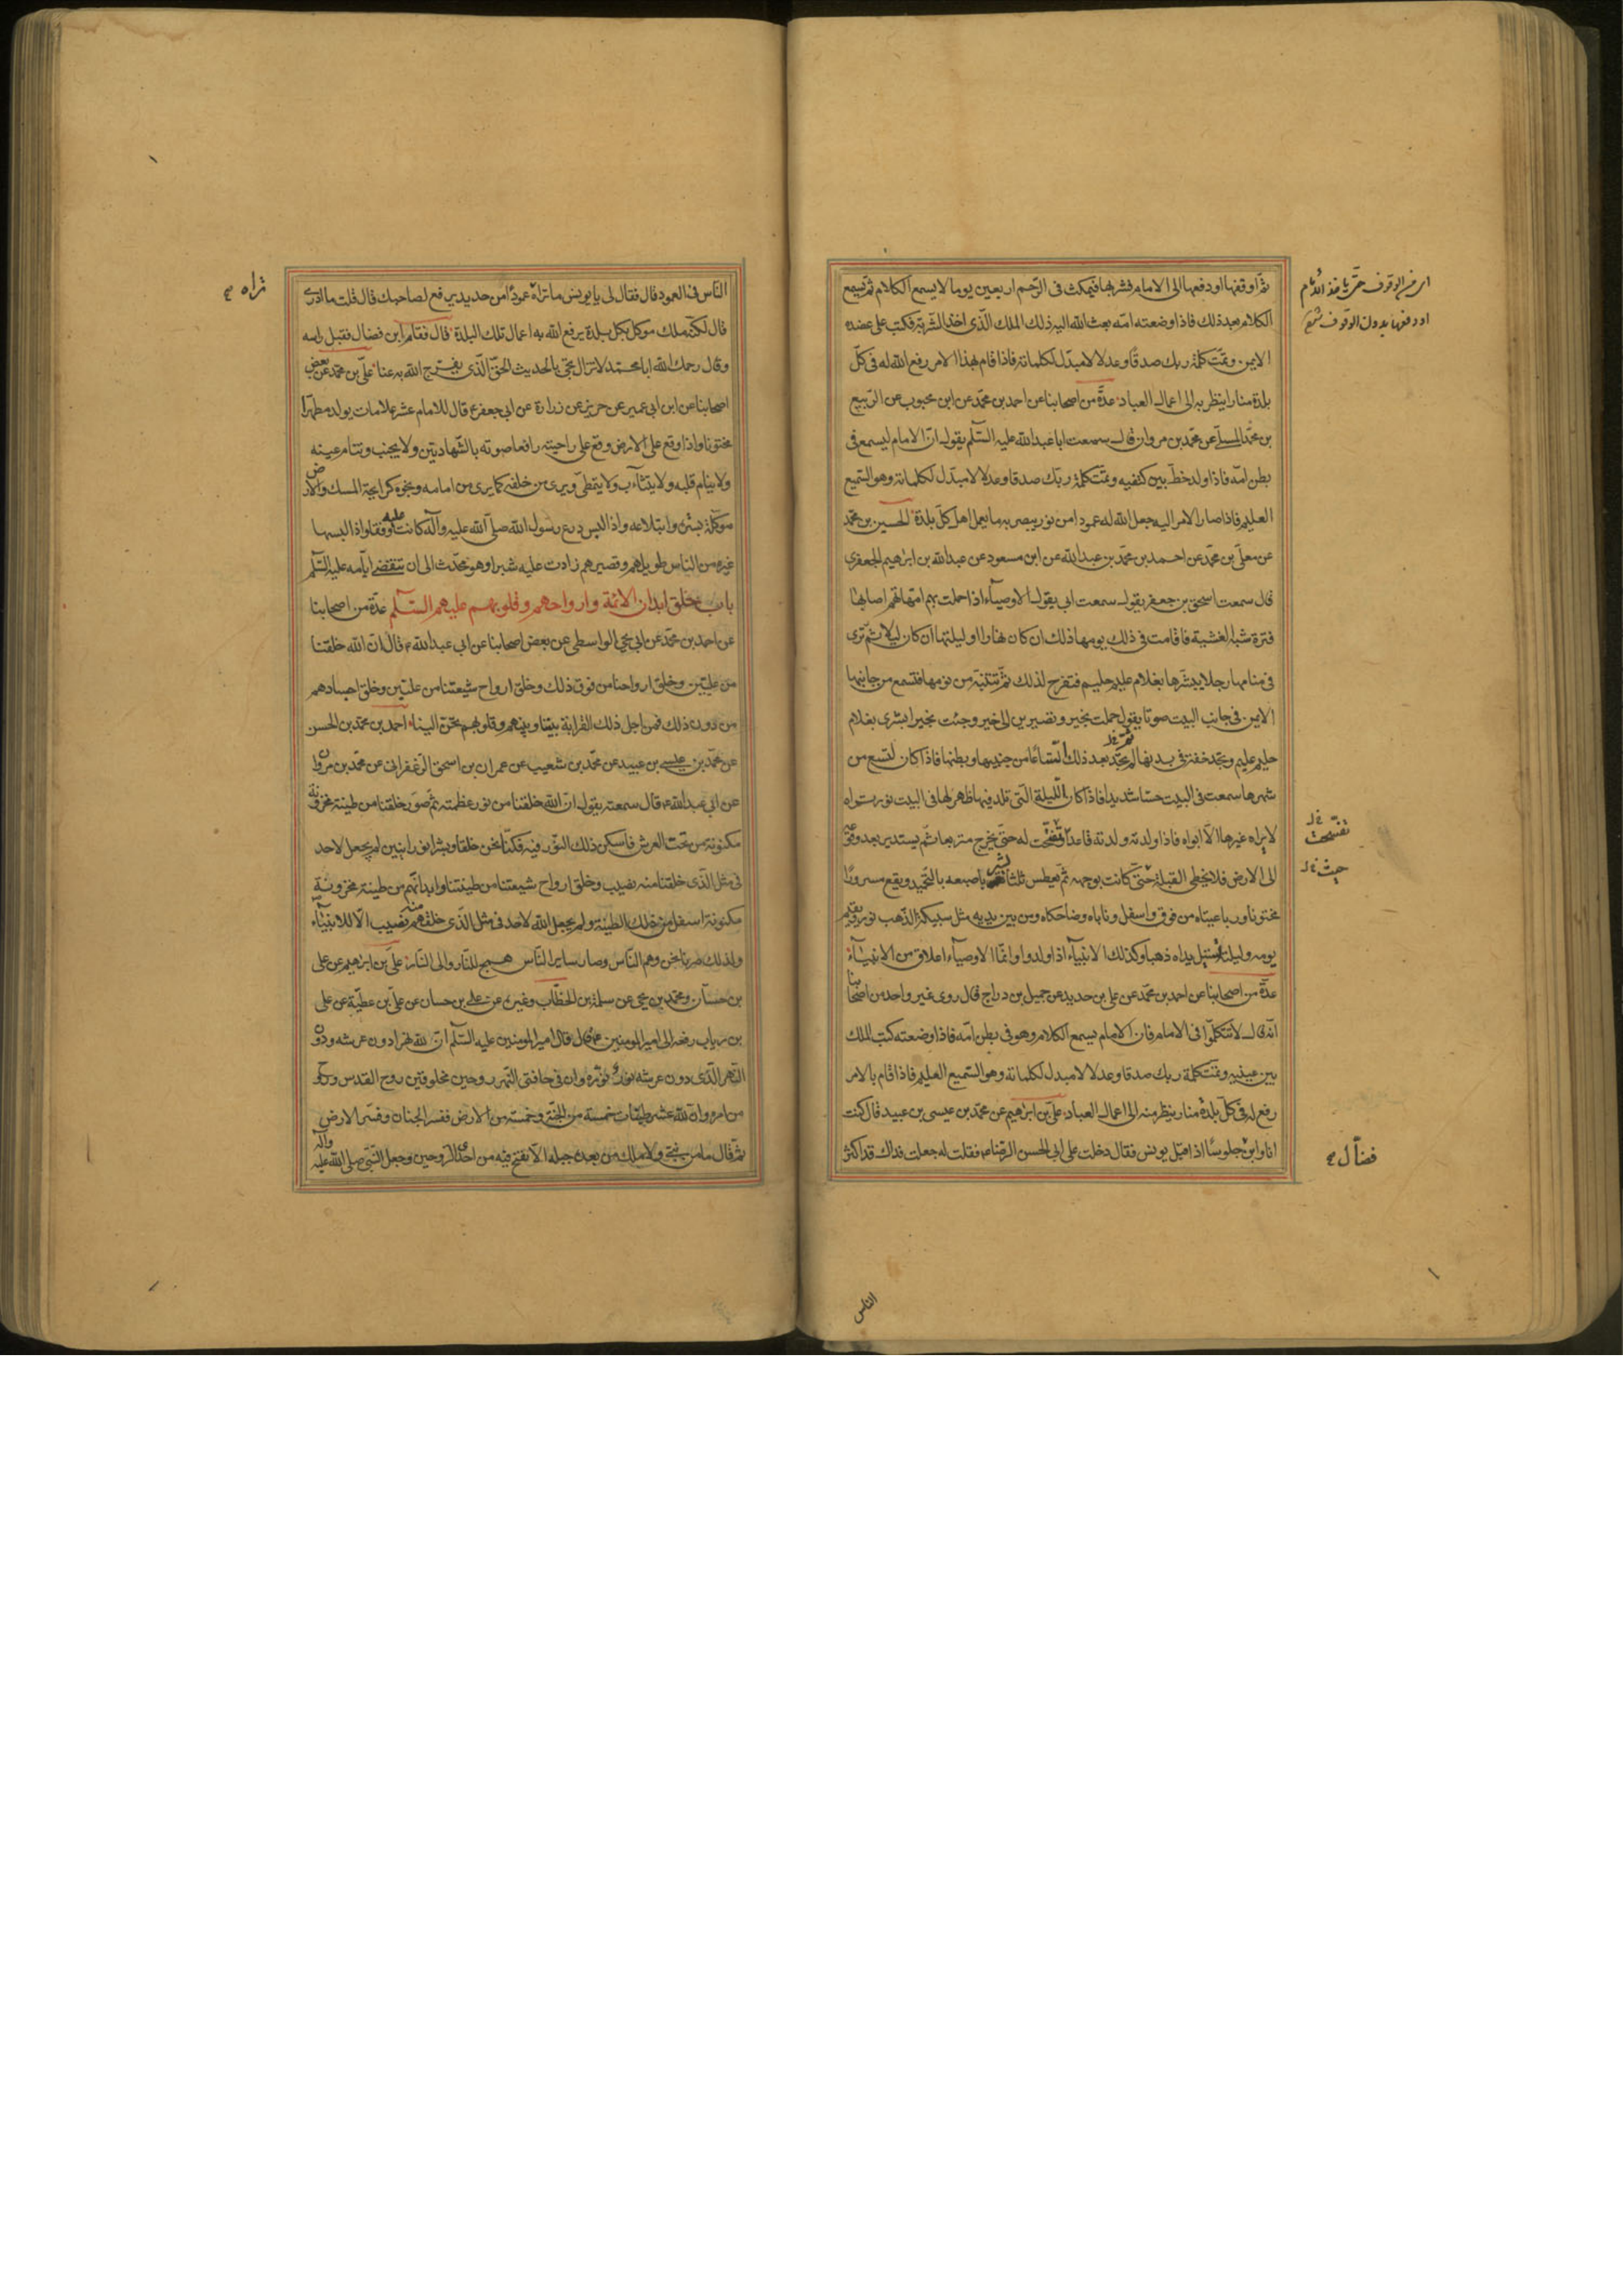 ثم اوقفها او دفعها الى الامام فشربها فيمكث فى الرّحم اربعين يوما لا يسمع الكلام ثم يسمع
الكلام بعد ذلك فاذا وضعته امّه بعث الله اليه ذلك الملك الّذى اخذ الشّربة فكتب على عضده
الايمن وتمّت كلمة ربك صدقا وعدلا لا مبدّل لكلماته فاذا قام بهذا الامر رفع الله له فى كلّ
بلدة منارا ينظر به الى اعمال العباد عدّة من اصحابنا عن احمد بن محمّد عن ابن محبوب عن الرّبيع
بن محمّد المسلّى عن محمّد بن مروان قال سمعت ابا عبد الله عليه السّلم يقول انّ الامام ليسمع فى
بطن امّه فاذا ولد خطّ بين كتفيه وتمّت كلمة ربّك صدقا وعدلا لا مبدّل لكلماته وهو السّميع
العليم فاذا صار الامر اليه جعل الله له عمودا من نور يبصر به ما يعمل اهل كلّ بلدة الحسين بن محمّد
عن معلّى بن محمّد عن احمد بن محمّد بن عبد الله عن ابن مسعود عن عبد الله بن ابراهيم الجعفرى
قال سمعت اسحق بن جعفر يقول سمعت ابى يقول الاوصياء اذا حملت بهم امهاتهم اصابها
فترة شبه الغشية فاقامت فى ذلك يومها ذلك ان كان نهارا او ليلتها ان كان ليلا ثمّ ترى
فى منامها رجلا يبشّرها بغلام عليم حليم فتفرح لذلك ثمّ تنتبه من نومها فتسمع من جانبها
الايمن فى جانب البيت صوتا يقول حملت بخير وتصيرين الى خير وجئت بخير ابشرى بغلام
حليم عليم وتجد خفة فى بدنها لم تجد بعد ذلك اتّساعا من جنبيها وبطنها فاذا كان لتسع من
شهرها سمعت فى البيت حسّا شديدا فاذا كان اللّيلة الّتى تلد فيها ظهر لها فى البيت نور تراه
لا يراه غيرها الّا ابواه فاذا ولدته ولدته قاعدا وتفتّحت له حتى يخرج متربعا ثم يستدير بعد وقوعه
الى الارض فلا يخطى القبلة حتى كانت بوجهه ثم يعطس ثلثا يشير باصبعه بالتّحميد ويقع مسرورا
مختونا ورباعيتاه من فوق واسفل وناباه وضاحكاه ومن بين يديه مثل سبيكة الذّهب نور ويقيم
يومه وليلته تسيل يداه ذهبا وكذلك الانبياء اذا ولدوا وانّما الاوصياء اعلاق من الانبياء
عدّة من اصحابنا عن احمد بن محمّد عن على بن حديد عن جميل بن دراج قال روى غير واحد من اصحابنا
انّه قال لا تتكلّموا فى الامام فان الامام يسمع الكلام وهو فى بطن امّه فاذا وضعته كتب الملك
بين عينيه وتمّت كلمة ربك صدقا وعدلا لا مبدل لكلماته وهو السّميع العليم فاذا قام بالامر
رفع له فى كلّ بلدة منار ينظر منه الى اعمال العباد علىّ بن ابراهيم عن محمّد بن عيسى بن عبيد قال كنت
انا وابن جلوسا اذ اقبل يونس فقال دخلت على ابى الحسن الرّضا ع فقلت له جعلت فداك قد اكثر
حيث خ ل
فضّال
الناس
النّاس فى العمود قال فقال لى يا يونس ما تراه عمودا من حديد يرفع لصاحبك قال قلت ما ادرى
قال لكنّه ملك موكل بكل بلدة يرفع الله به اعمال تلك البلدة قال فقام ابن فضال فقبل راسه
وقال رحمك الله ابا محمّد لا تزال تجئ بالحديث الحقّ الّذى يفرّج الله به عنا علىّ بن محمّد عن بعض
اصحابنا عن ابن ابى عمير عن حريز عن زرارة عن ابى جعفر ع قال للامام عشر علامات يولد مطهرا
مختونا واذا وقع على الارض وقع على راحته رافعا صوته بالشّهادتين ولا يجنب وتنام عينه
ولا ينام قلبه ولا يتثاءب ولا يتمطّى ويرى من خلفه كما يرى من امامه ونجوه كرايحة المسك والارض
موكلة بستره وابتلاعه واذا لبس درع رسول الله صلّى الله عليه وآله كانت عليه وفقا واذا لبسها
غيره من النّاس طويلهم وقصيرهم زادت عليه شبرا وهو محدّث الى ان تنقضى ايّامه عليه السّلم
باب خلق ابدان الائمّة وارواحهم وقلوبهم عليهم السّلم عدّة من اصحابنا
عن احمد بن محمّد عن ابى يحيى الواسطى عن بعض اصحابنا عن ابى عبد الله ع قال انّ الله خلقنا
من علّيين وخلق ارواحنا من فوق ذلك وخلق ارواح شيعتنا من علّيين وخلق اجسادهم
من دون ذلك فمن اجل ذلك القرابة بيننا وبينهم وقلوبهم تحنّ الينا احمد بن محمّد بن الحسن
عن محمّد بن عيسى بن عبيد عن محمّد بن شعيب عن عمران بن اسحق الزّعفرانى عن محمّد بن مروان
عن ابى عبد الله ع قال سمعته يقول انّ الله خلقنا من نور عظمته ثم صوّر خلقنا من طينة مخزونة
مكنونة من تحت العرش فاسكن ذلك النّور فيه فكنّا نحن خلقا وبشرا نورانيين لم يجعل لاحد
فى مثل الّذى خلقنا منه نصيب وخلق ارواح شيعتنا من طينتنا وابدانهم من طينة مخزونة
مكنونة اسفل من ذلك الطينة ولم يجعل الله لاحد فى مثل الّذى خلقهم منه نصيب الّا للانبياء
ولذلك صرنا نحن وهم النّاس وصار ساير النّاس همج للنّار والى النّار علىّ بن ابراهيم عن على
بن حسّان ومحمّد بن يحيى عن سلمة بن الخطّاب وغيره عن على بن حسان عن علىّ بن عطيّة عن على
بن رياب رفعه الى امير المومنين ع قال قال امير المومنين عليه السّلم انّ لله نهرا دون عرشه ودون
النّهر الّذى دون عرشه نور نوّره وان فى حافتى النّهر روحين مخلوقين روح القدس وروح
من امره وانّ لله عشر طينات خمسة من الجنّة وخمسة من الارض ففسر الجنان وفسّر الارض
ثم قال ما من نبىّ ولا ملك من بعده جبله الّا نفخ فيه من احدى الرّوحين وجعل النّبىّ صلى الله عليه وآله
تراه